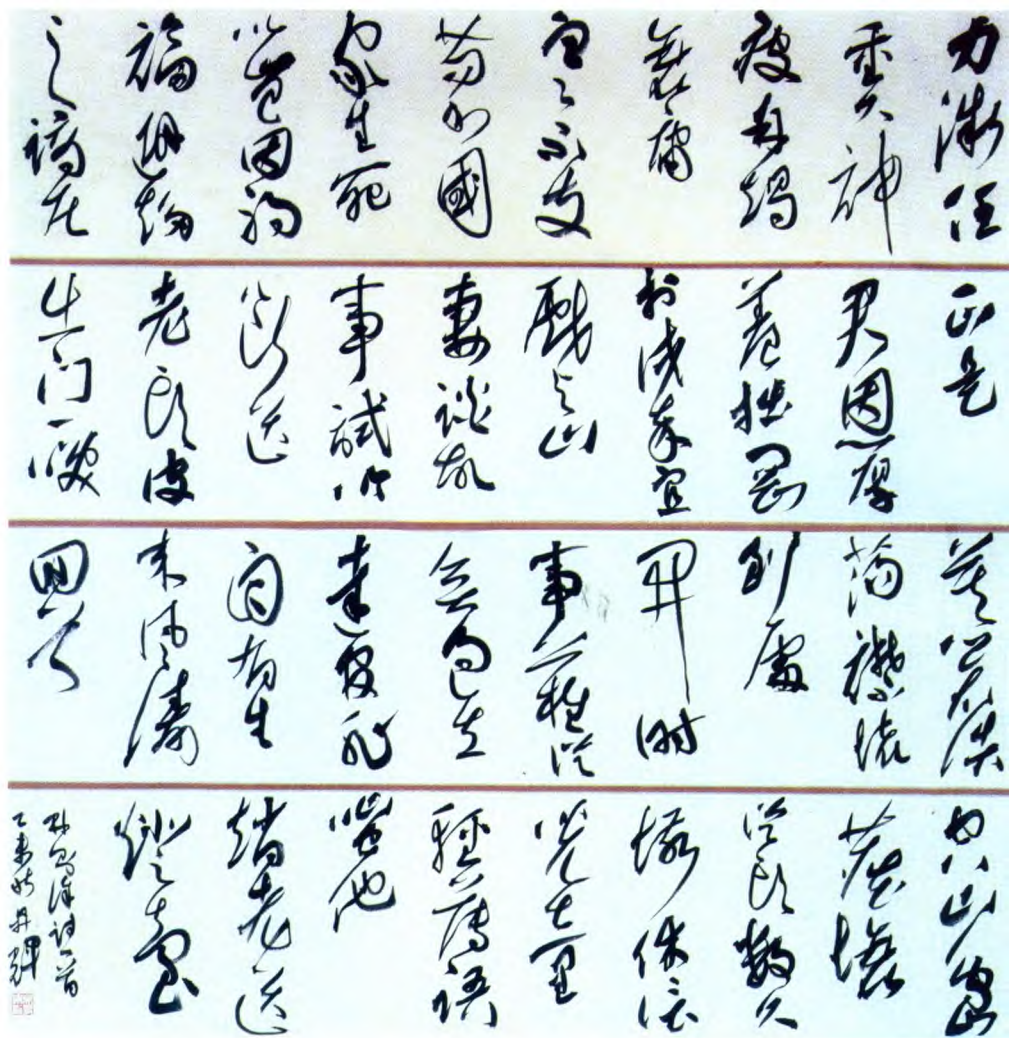 力微任
重久神
疲再竭
衰庸
定不支
苟利國
家生死
以豈因禍
福避趨
之謫居
正是
君恩厚
養拙剛
於戍卒宜
戲與山
妻談故
事試吟
斷送
老頭皮
出门一笑
莫心哀浩
蕩襟懷
到處
開时
事難從
無過立
達官非
自有生
來風濤
回首
空三島
塵壤
從頭數九
垓休信
兒童
輕薄語
嗤他
趙老送
燈臺
林則徐詩二首